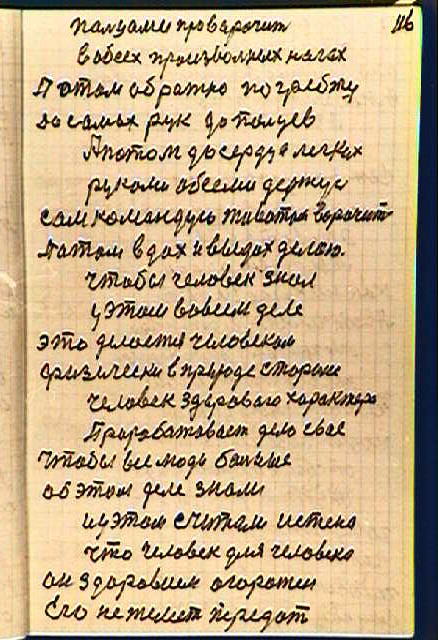 116
пальцами проварочит
в обеех произволних нагах
Потом обратно по хребту
до самых рук до польцев
Апотом до сердца легких
руками обееми держус
сам командую животня ворочит
Патом вдох и выдох делаю.
чтобы человек знал
у этом вовсем деле
это делается человеком
физически в природе стороне
человек здароваго характера
Прарабатовает дело свае
чтобы все люди больше
об этом деле знали
и у этом считали истено
что человек для человека
он здоровием огорожен
Его не может передат